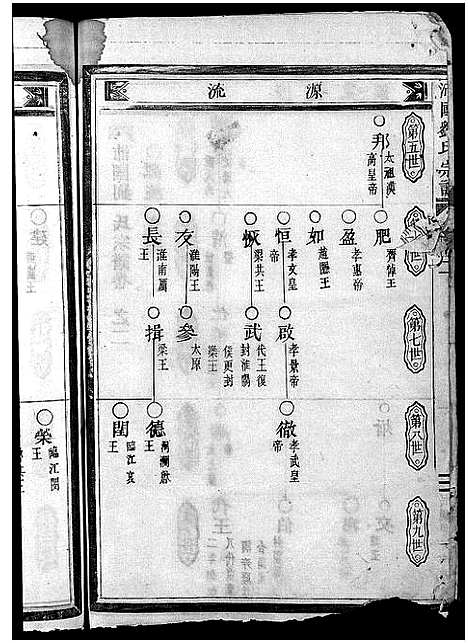 源流
第五世
邦
太祖漢
高皇帝
肥
齊悼王
盈
孝惠帝
如
趙隱王
恒
孝文皇
帝
恢
梁共王
友
淮陽王
長
淮南厲
王
第七世
啟
孝景帝
武
代王復
封淮陽
侯更封
梁王
參
太原
揖
梁王
第八世
徹
孝武皇
帝
德
閎
臨江哀
王
第九世
建
榮
臨江閔
王